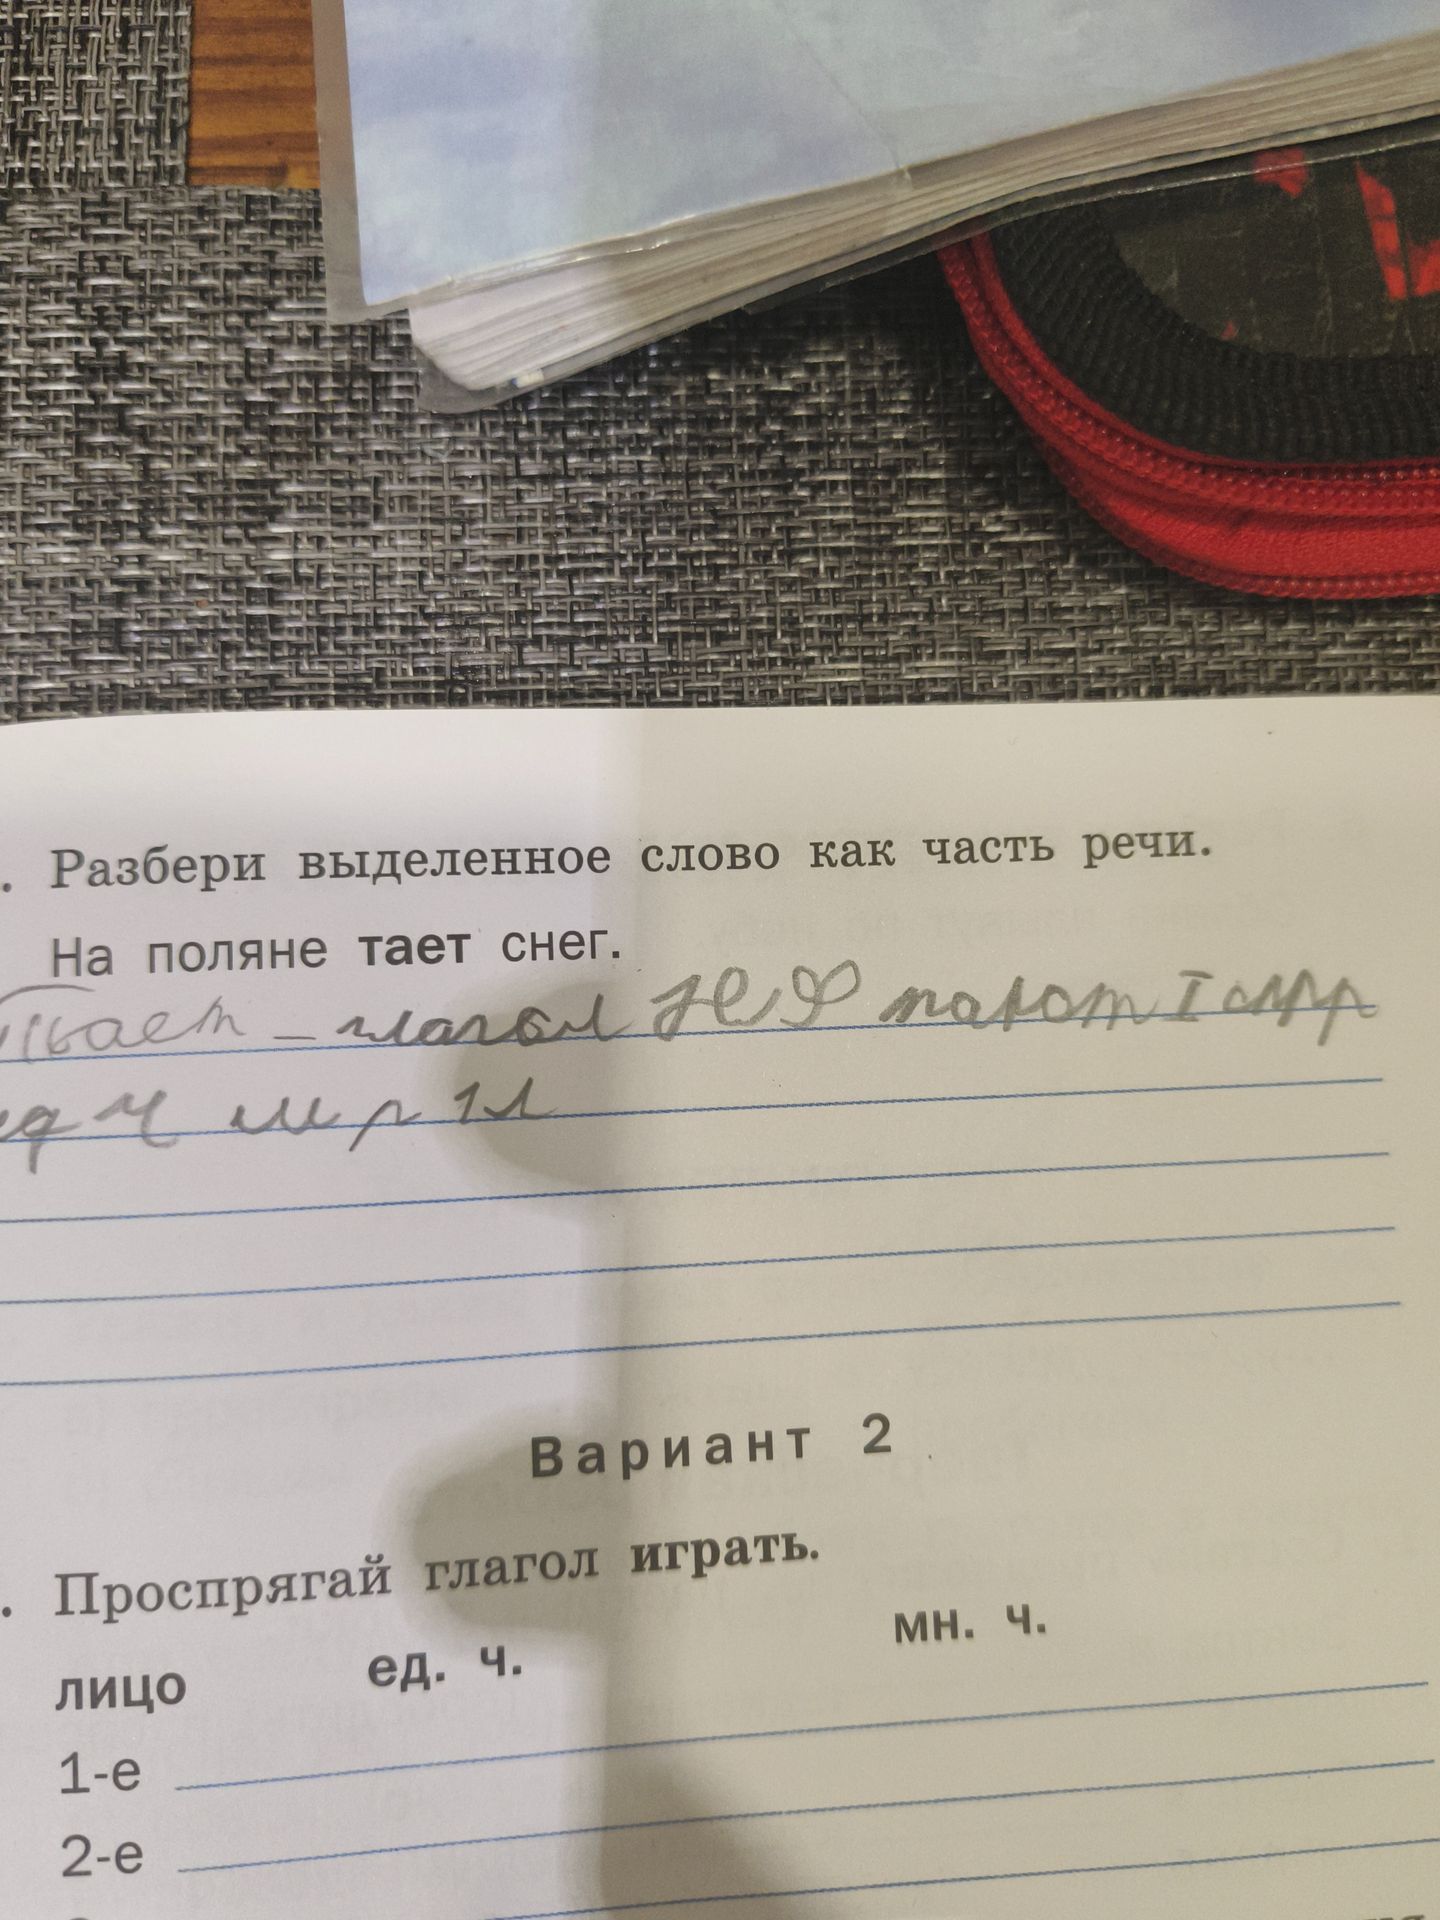 . Разбери выделенное слово как часть речи.
На поляне тает снег.
– глагол НФ I спр
ед ч м р 1 л
Вариант 2
. Проспрягай глагол играть.
лицо ед. ч. мн. ч.
1-е
2-е